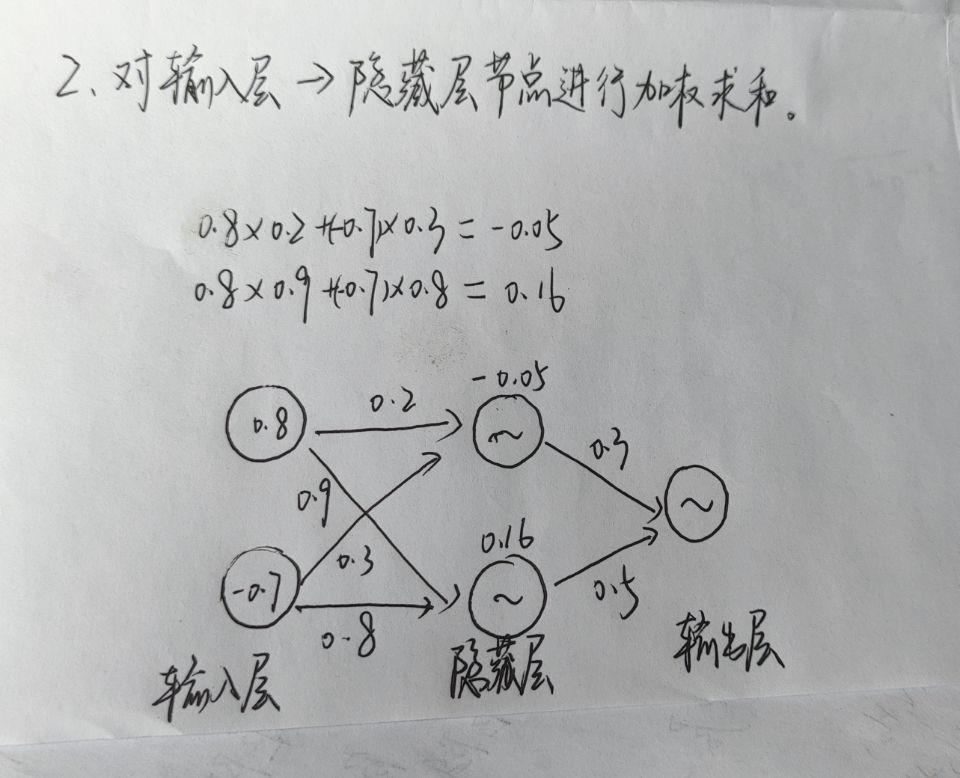 2、对输入层→隐藏层节点进行加权求和。
0.8×0.2+(-0.7)×0.3=-0.05
0.8×0.9+(-0.7)×0.8=0.16
-0.05
0.8 0.2 ~ 0.3
0.9 ~
0.16
-0.7 0.3 ~ 0.5
0.8
输入层 隐藏层 输出层